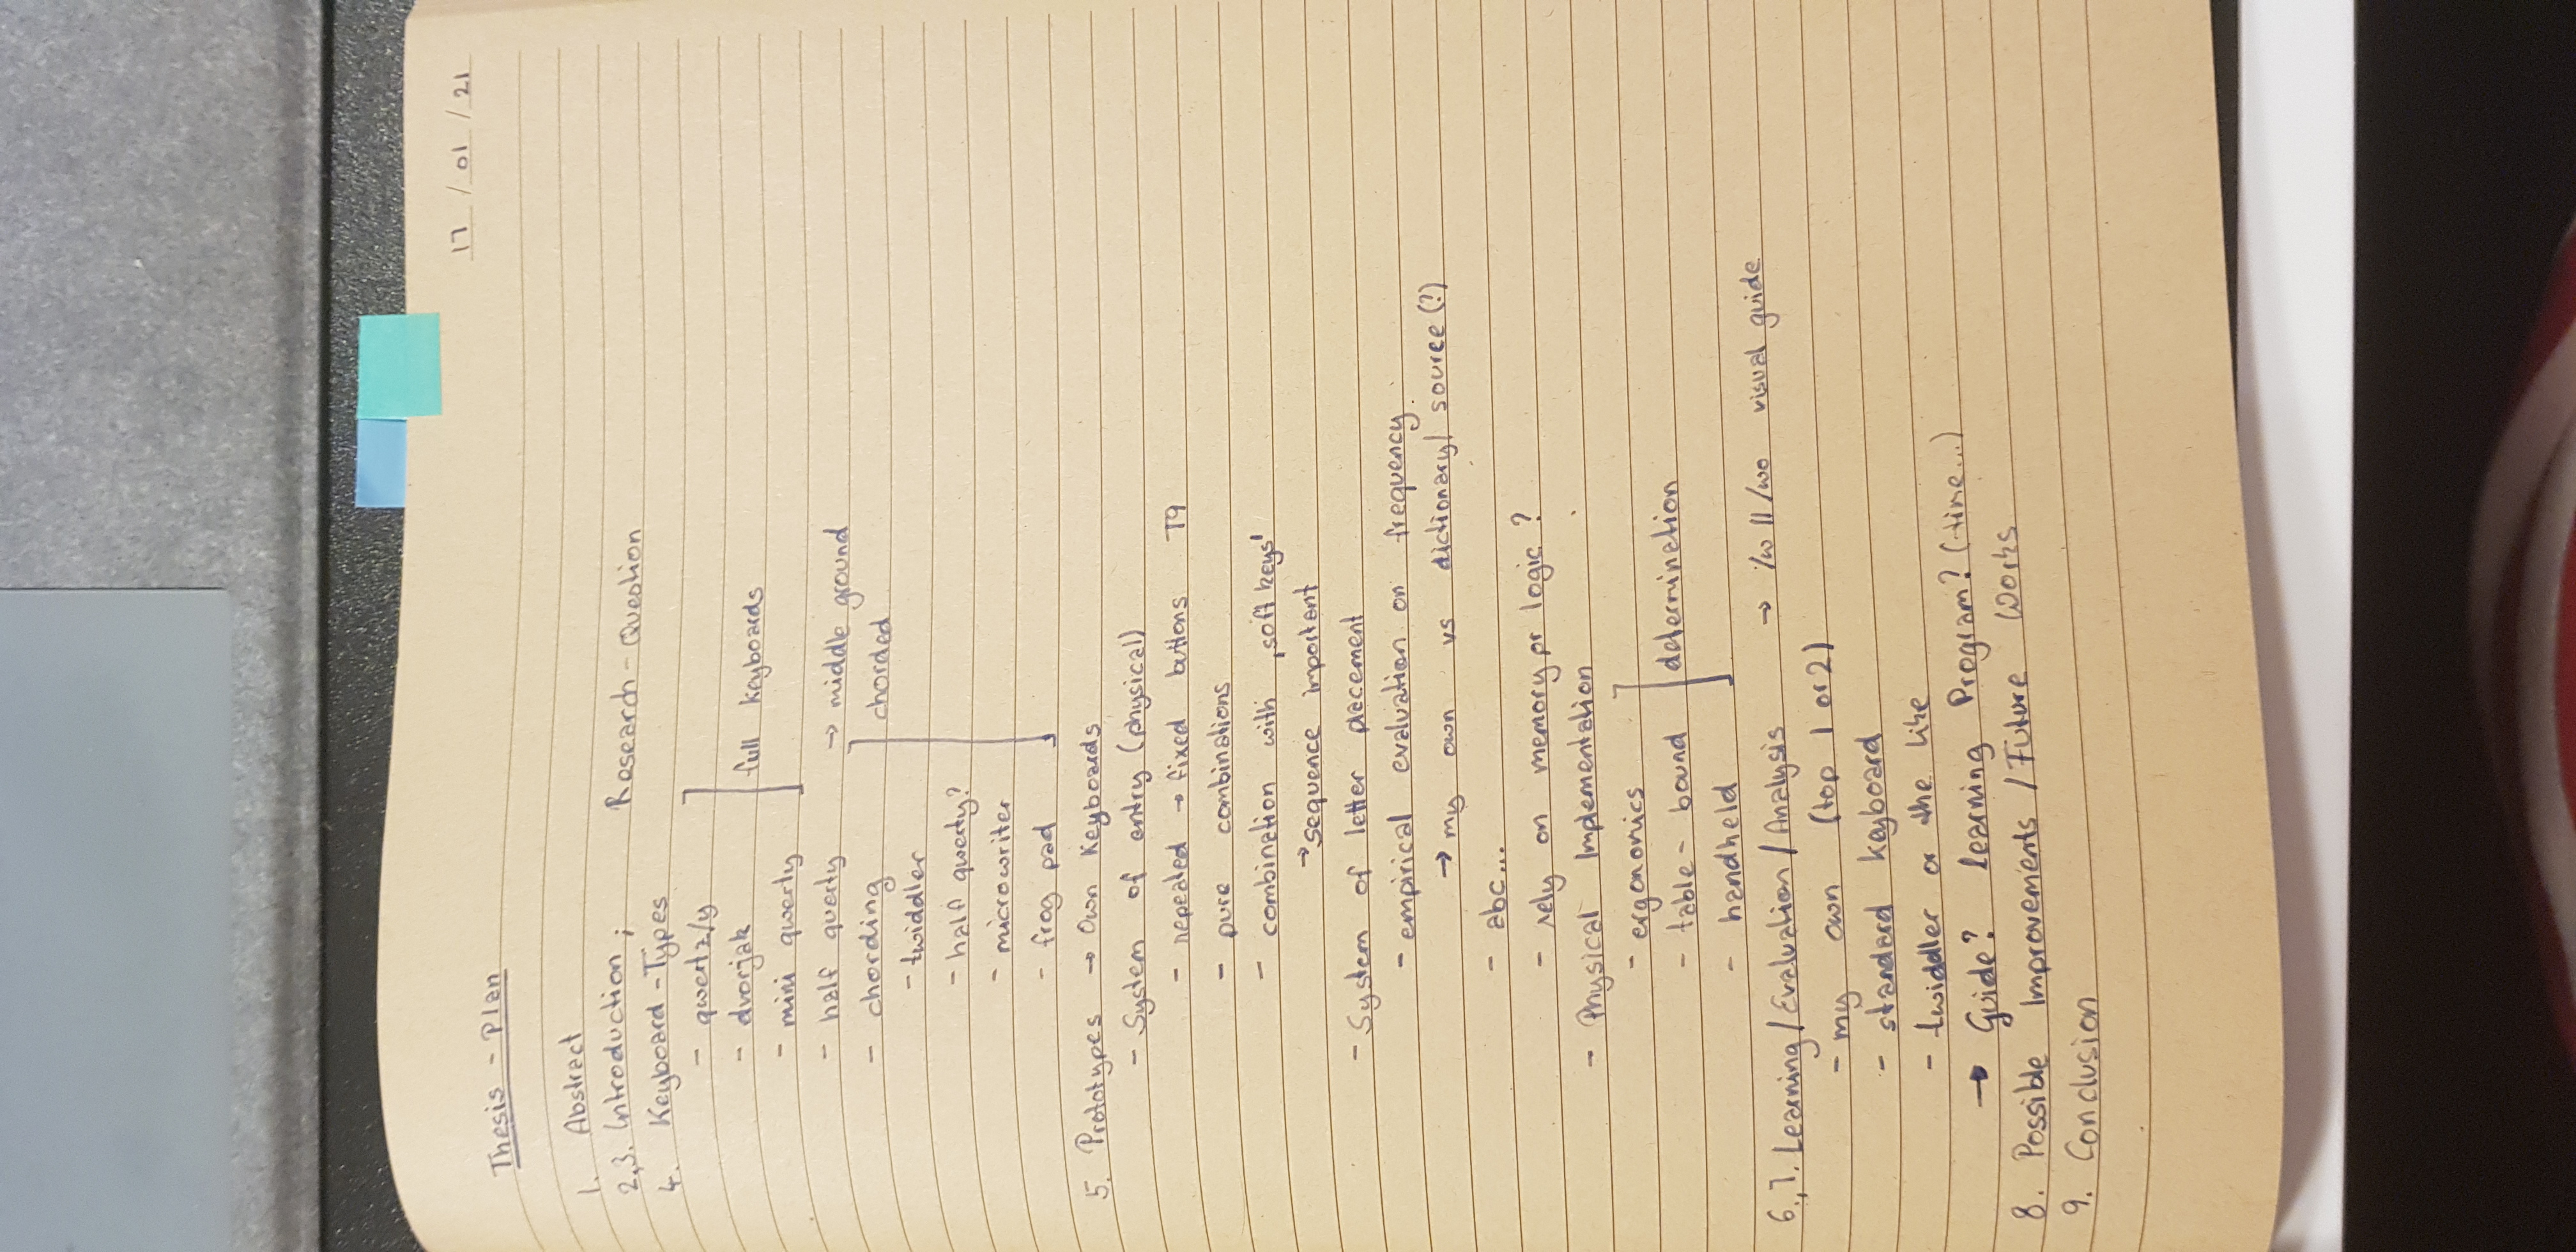 17 / 01 / 21
Thesis - Plan
1. Abstract
2,3. Introduction ; Research - Question
4. Keyboard - Types
- qwertz/y
- dvorjak
- mini qwerty
full keyboards
- half querty → middle ground
- chording
chorded
- twiddler
- half qwerty?
- microwriter
- frog pad
5. Prototypes → Own Keyboards
- System of entry (physical)
- repeated → fixed buttons T9
- pure combinations
- combination with ‚soft keys'
→ sequence important
- System of letter placement
- empirical evaluation on frequency
→ my own vs dictionary/ source (?)
- abc...
- rely on memory or logic ?
- Physical Implementation
- ergonomics
- table - bound
- handheld
determination
6., 7. Learning / Evaluation / Analysis → /w || /wo visual guide
- my own (top 1 or 2)
- standard keyboard
- twiddler or the like
→ Guide? learning Program? (time...)
8. Possible Improvements / Future Works
9. Conclusion